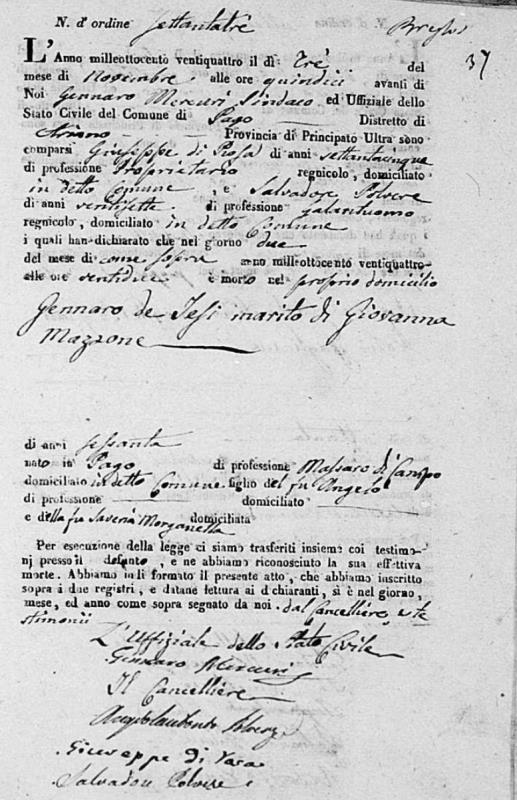 N. d'ordine settantatrè
37
L'Anno milleottocento ventiquattro il dì Trè del
mese di Novembre alle ore quindici avanti di
Noi Gennaro Mercuri Sindaco ed Uffiziale dello
Stato Civile del Comune di Pago Distretto di
Ariano Provincia di Principato Ultra sono
comparsi Giuseppe di Rosa di anni settantacinque
di professione Proprietario regnicolo, domiciliato
in detto Comune, e Salvadore Polvere
di anni ventisette di professione galantuomo
regnicolo, domiciliato in detto Comune
i quali han dichiarato che nel giorno due
del mese di come sopra anno milleottocento ventiquattro
alle ore ventidue è morto nel proprio domicilio
Gennaro de Iesi marito di Giovanna
Mazzone
di anni sessanta
nato in Pago di professione Massaro di Campo
domiciliato in detto Comune figlio del fu Angelo
di professione domiciliato
e della fu Saveria Morganella domiciliata
Per esecuzione della legge ci siamo trasferiti insieme coi testimo-
nj presso il defunto, e ne abbiamo riconosciuto la sua effettiva
morte. Abbiamo indi formato il presente atto, che abbiamo inscritto
sopra i due registri, e datane lettura ai dichiaranti, si è nel giorno,
mese, ed anno come sopra segnato da noi. dal Cancelliere, e te
stimonii
L'Uffiziale dello Stato Civile
Gennaro Mercuri
Il Cancelliere
Giuseppe Di
Salvadore Polvere